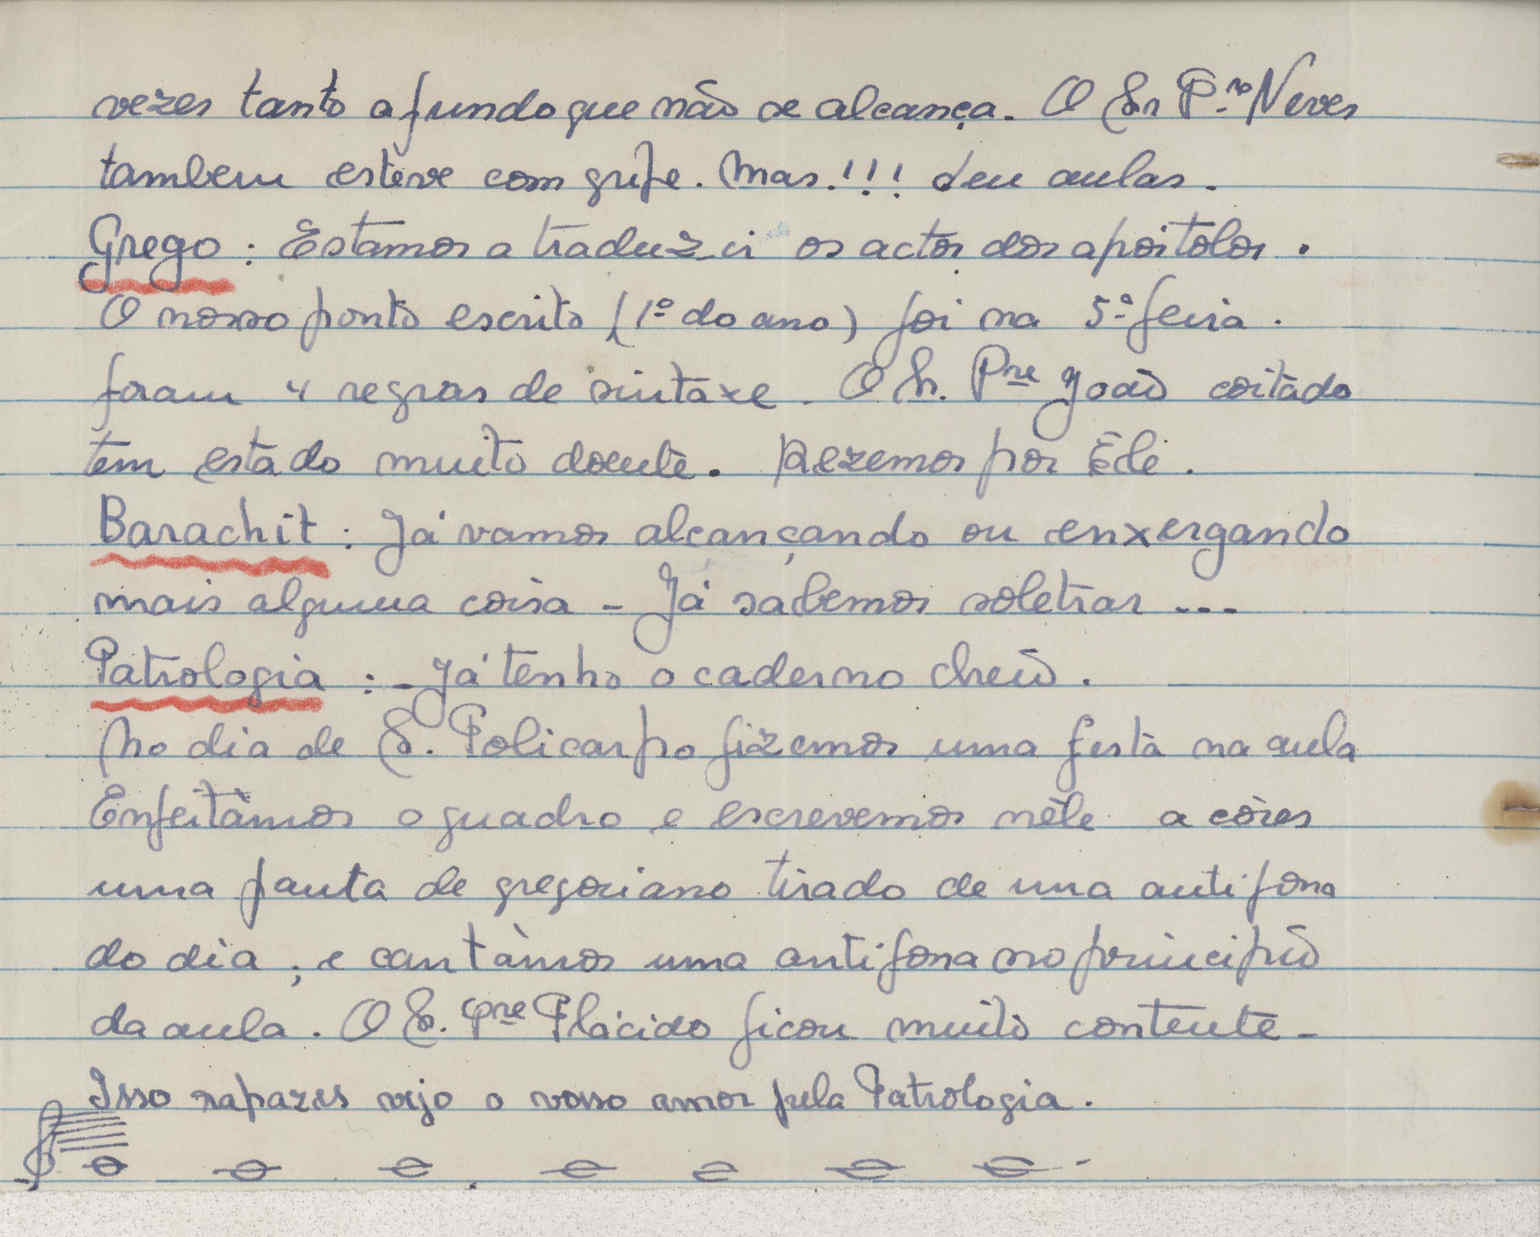 vezes tanto a fundo que não se alcança. O Sr P.re Neves
tambem estève com gripe. Mas.!!! deu aulas.
Grego : Estamos a traduzir os actos dos apostolos.
O nosso ponto escrito (1º do ano) foi na 5ª feira.
foram 4 regras de sintaxe. O Sr. Pre João coitado
tem estado muito doente. Rezemos por Êle.
Barachit : Já vamos alcançando ou enxergando
mais alguma coisa - Já sabemos soletrar ...
Patrologia : - Já tenho o caderno cheio.
No dia de S. Policarpo fizemos uma festa na aula
Enfeitàmos o quadro e escrevemos nêle a côres
uma pauta de gregoriano tirado de uma antifona
do dia ; e cantàmos uma antifona no principio
da aula. O S. Pre Plácido ficou muito contente -
Isso rapazes vejo o vosso amor pela Patrologia.